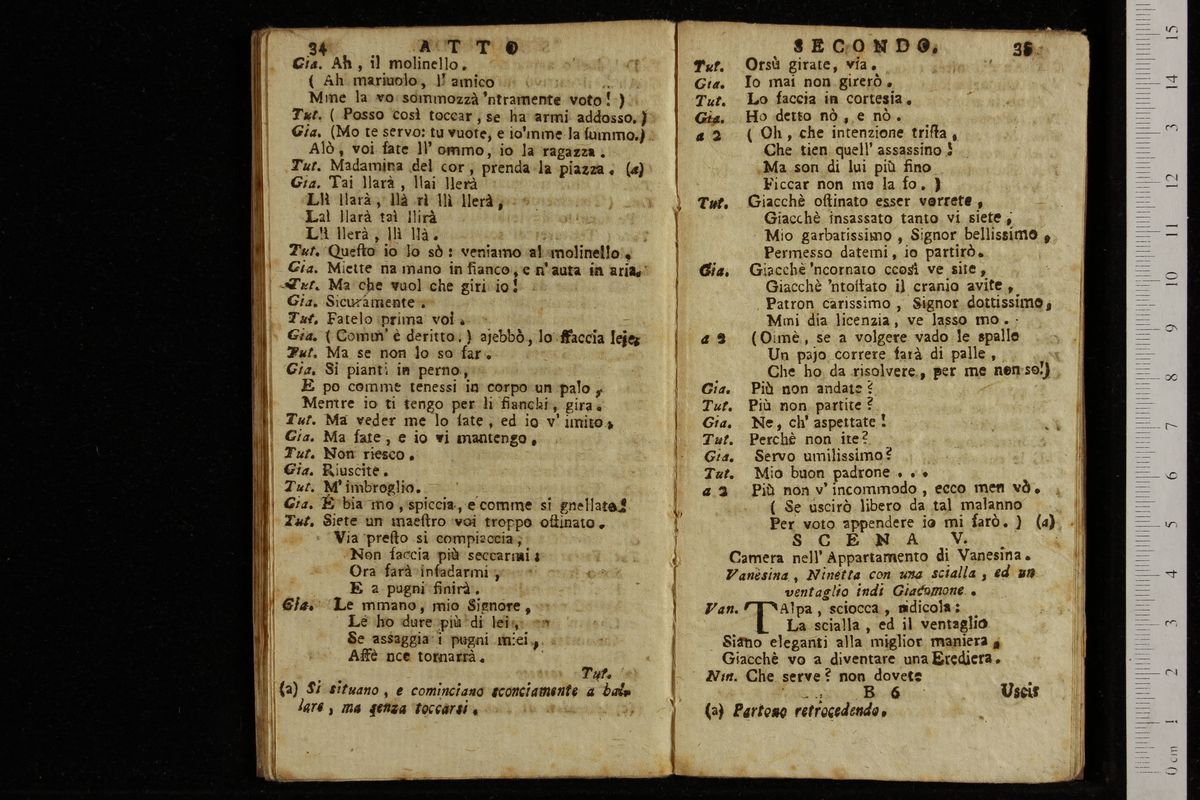 34 ATTO
Gia. Ah, il molinello.
( Ah mariuolo, ll' amico
Mme la vo sommozzà 'ntramente voto! )
Tut. ( Posso così toccar, se ha armi addosso. )
Gia. (Mo te servo: tu vuote, e io 'mme la summo.)
Alò, voi fate ll' ommo, io la ragazza.
Tut. Madamina del cor, prenda la piazza. (a)
Gia. Tai llarà, llai llerà
Llì llarà, llà rì llì llerà,
Lal llarà taì llirà
Llì llerà, llì llà.
Tut. Questo io lo sò: veniamo al molinello.
Gia. Miette na mano in fianco, e n' auta in aria.
Tut. Ma che vuol che giri io!
Gia. Sicuramente.
Tut. Fatelo prima voi.
Gia. ( Comm' è deritto. ) ajebbò, lo ffaccia leje.
Tut. Ma se non lo so far.
Gia. Si pianti in perno,
E po comme tenessi in corpo un palo,
Mentre io ti tengo per li fianchi, gira.
Tut. Ma veder me lo fate, ed io v' imito.
Gia. Ma fate, e io vi mantengo.
Tut. Non riesco.
Gia. Riuscite.
Tut. M' imbroglio.
Gia. E bia mo, spiccia, e comme si gnellato!
Tut. Siete un maestro voi troppo ostinato.
Via presto si compiaccia,
Non faccia più seccarmi:
Ora farà infadarmi,
E a pugni finirà.
Gia. Le mmano, mio Signore,
Le ho dure più di lei,
Se assaggia i pugni miei,
Affè nce tornarrà.
Tut.
(a) Si situano, e cominciano sconciamente a bal-
lare, ma senza toccarsi.
SECONDO. 35
Tut. Orsù girate, via.
Gia. Io mai non girerò.
Tut. Lo faccia in cortesia.
Gia. Ho detto nò, e nò.
a 2 ( Oh, che intenzione trista,
Che tien quell' assassino!
Ma son di lui più fino
Ficcar non me la fo. )
Tut. Giacchè ostinato esser vorrete,
Giacchè insassato tanto vi siete,
Mio garbatissimo, Signor bellissimo,
Permesso datemi, io partirò.
Gia. Giacchè 'ncornato ccosì ve site,
Giacchè 'ntostato il cranio avite,
Patron carissimo, Signor dottissimo,
Mmi dia licenzia, ve lasso mo.
a 2 (Oimè, se a volgere vado le spalle
Un pajo correre farà di palle,
Che ho da risolvere, per me non so!)
Gia. Più non andate?
Tut. Più non partite?
Gia. Ne, ch' aspettate!
Tut. Perchè non ite?
Gia. Servo umilissimo?
Tut. Mio buon padrone . . .
a 2 Più non v' incommodo, ecco men vò.
( Se uscirò libero da tal malanno
Per voto appendere io mi farò. ) (a)
SCENA V.
Camera nell' Appartamento di Vanesina.
Vanesina, Ninetta con una scialla, ed un
ventaglio indi Giacomone.
Van. TAlpa, sciocca, ridicola:
La scialla, ed il ventaglio
Siano eleganti alla miglior maniera,
Giacchè vo a diventare una Erediera.
Nin. Che serve? non dovete
B 6 Uscir
(a) Partono retrocedendo.
0 cm 1 2 3 4 5 6 7 8 9 10 11 12 13 14 15